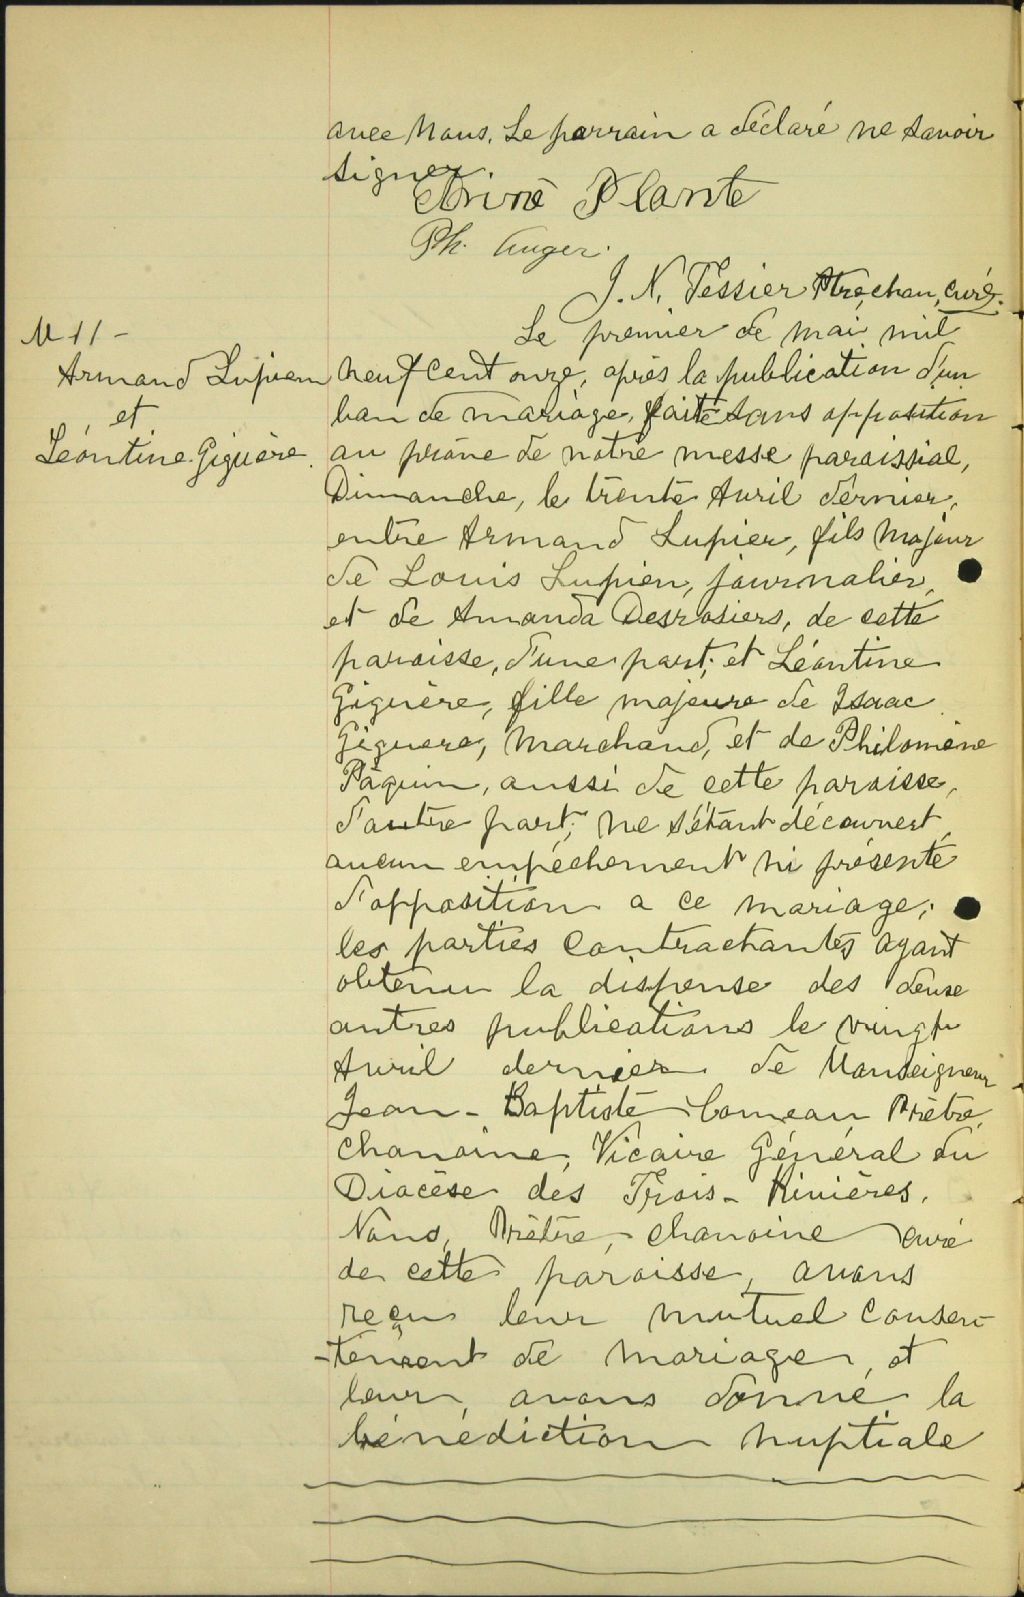 avec Nous. Le parrain a déclaré ne savoir
signer
Plante
Ph. Auger.
J. N. Tessier Ptre, chan, curé.
M 11 -
Armand Lupien
et
Léontine Giguère.
Le premier de mai mil
neuf cent onze, après la publication d'un
ban de mariage, faite sans opposition
au prône de notre messe paroissial,
Dimanche, le trente Avril dernier,
entre Armand Lupier, fils majeur
de Louis Lupien, journalier,
et de Amanda Desrosiers, de cette
paroisse, d'une part; et Léontine
Giguère, fille majeure de Isaac
Giguere, Marchand, et de Philomène
Pâquin, aussi de cette paroisse,
d'autre part; ne s'étant découvert
aucun empêchement ni présenté
d'opposition a ce mariage;
les parties contractantes ayant
obtenu la dispense des deux
autres publications le vingt
Avril dernier de Monseigneur
Jean-Baptiste Comeau Prêtre,
chanoine, Vicaire Général du
Diocèse des Trois-Rivières.
Nous, Prêtre, chanoine curé
de cette paroisse, avons
reçu leur mutuel consen-
-tement de mariage, et
leur, avons donné la
bénédiction nuptiale